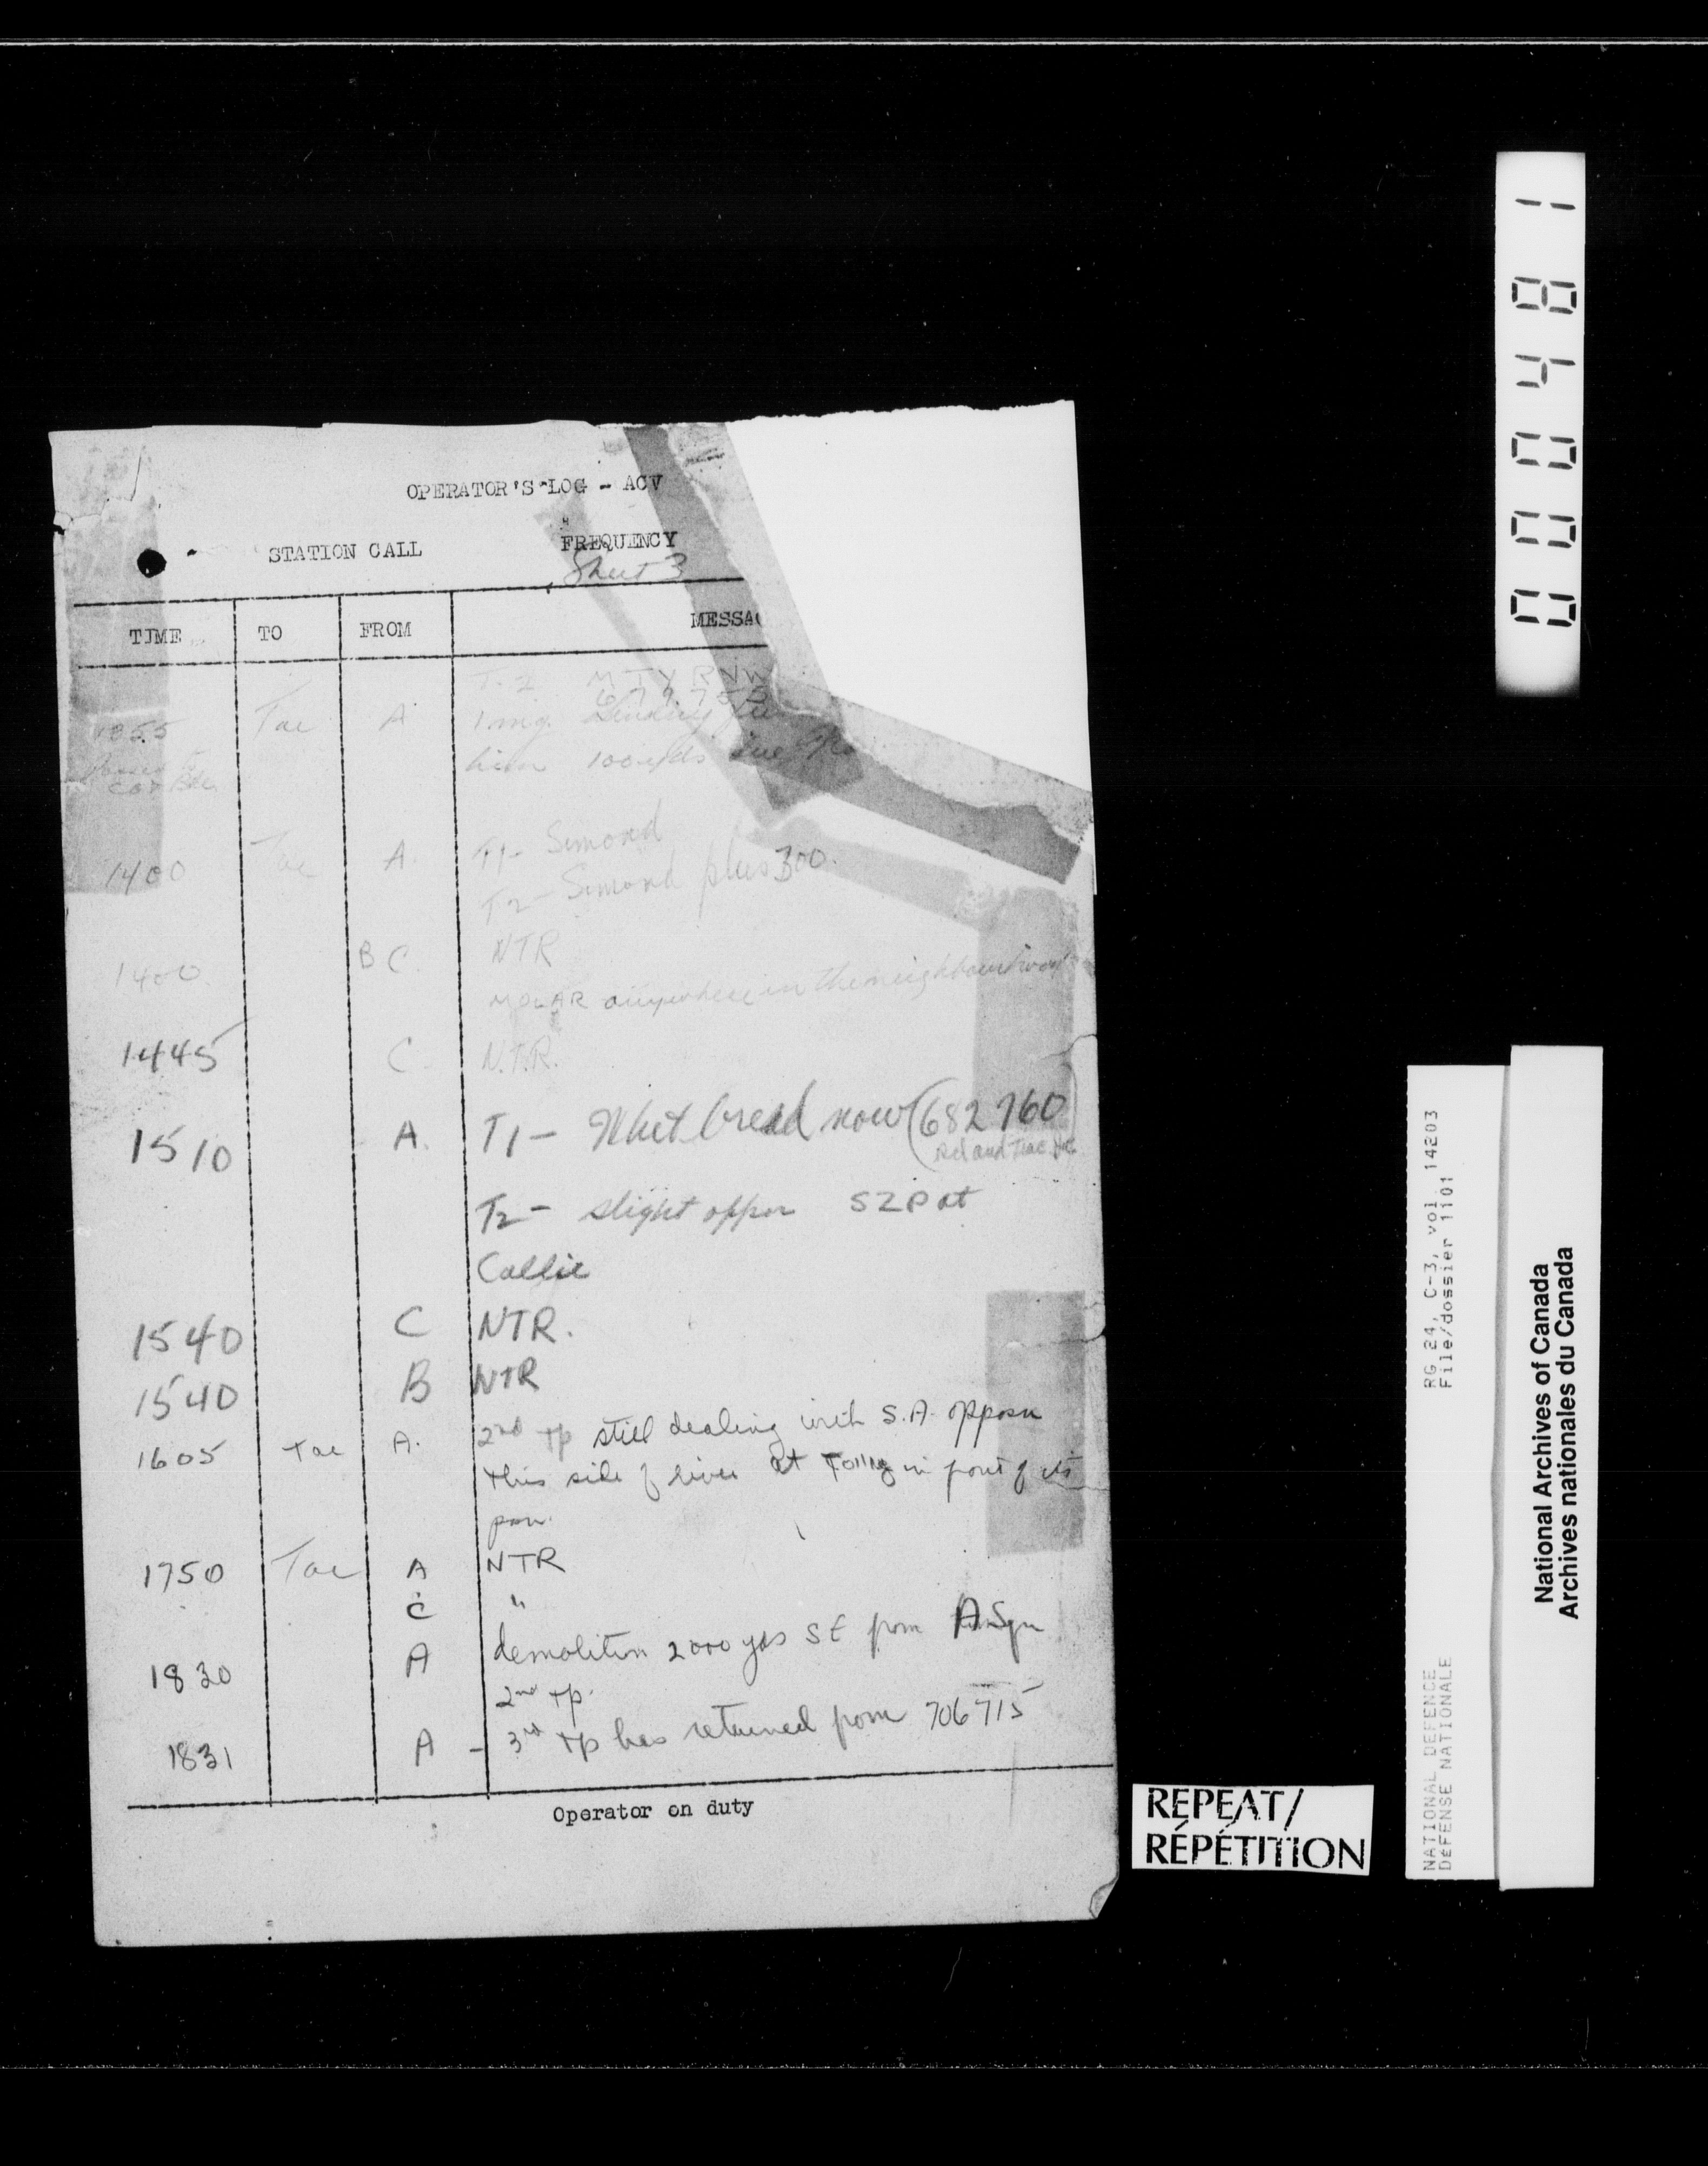 OPERATOR'S LOG - ACV
STATION CALL FREQUENCY
Sheet 3
TIME TO FROM MESSAG
T-2 MTY RNW
677755
1355 Tac A 1 mg.
him 100 yds
1400 Tac A. T1- Simond
T2- Simond plus 300.
1400 B C. NTR
MOLAR anywhere in the neighbourhood
1445 C. N.T.R.
1510 A. T1 - Whit bread now (682 760)
T2 - slight oppon SZP at
Callie
1540 C NTR.
1540 B NTR
1605 Tac A. 2nd tp still dealing with S.A. opposn
this side of river at in front of its
posn.
1750 Tac A NTR
C "
1830 A demolition 2000 yds SE from A Sqn
2nd tp.
1831 A - 3rd tp has returned from 706715
Operator on duty
000481
RG 24, C-3, vol. 14203
File/dossier 1101
NATIONAL DEFENCE
DÉFENSE NATIONALE
National Archives of Canada
Archives nationales du Canada
REPEAT/
RÉPÉTITION